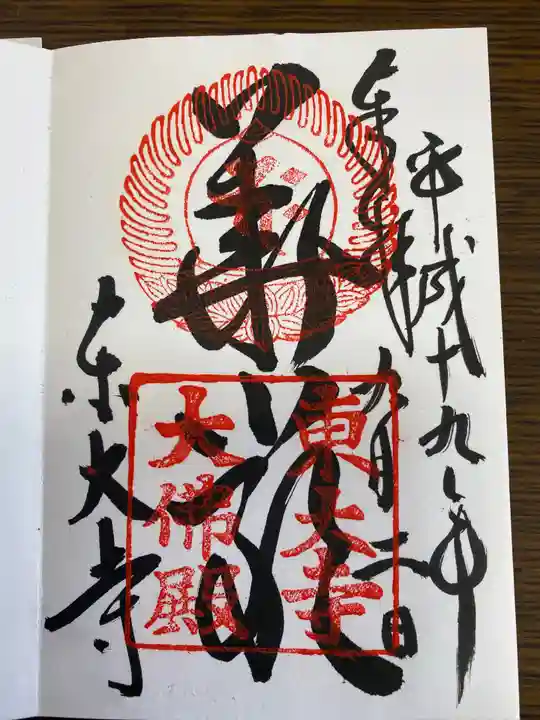 平成十九年
奉拝
月二日
華厳
東大寺
東大寺
大佛殿